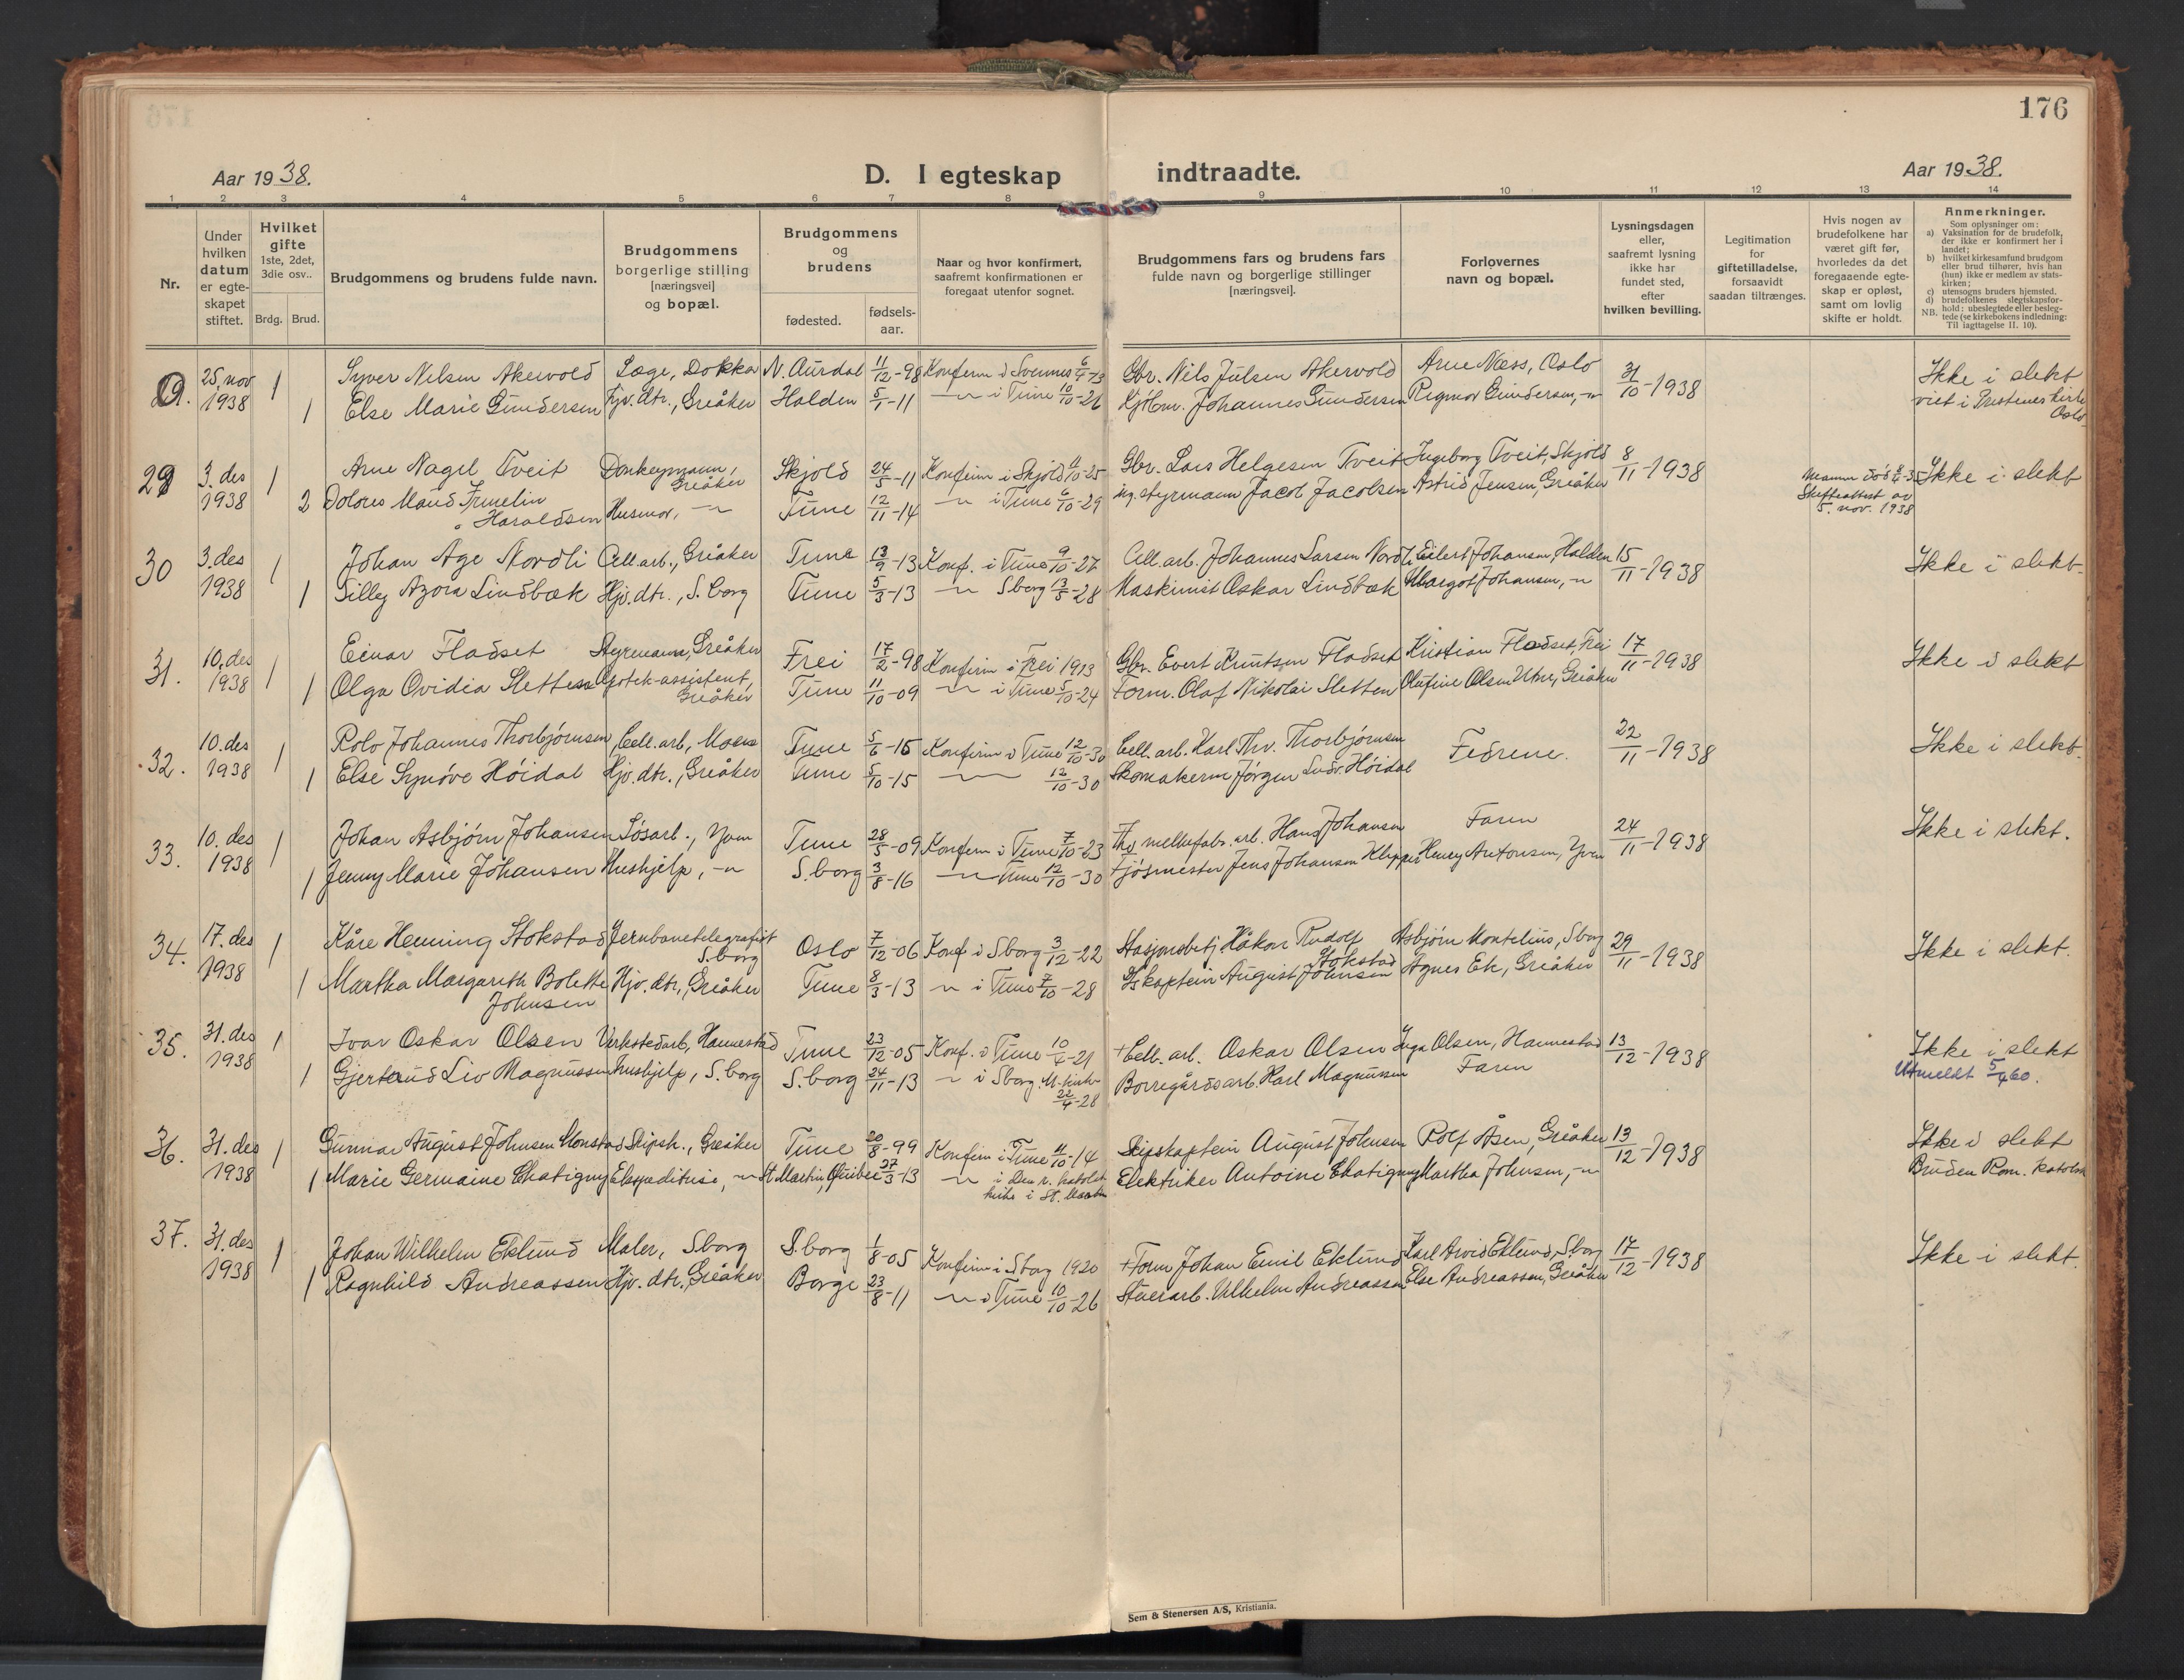 176
Aar 1938.
D. I egteskap indtraadte.
Aar 1938.
1 2 3 4 5 6 7 8 9 10 11 12 13 14
Nr.
Under hvilken datum er egte-skapet stiftet.
Hvilket gifte 1ste, 2det, 3die osv..
Brdg. Brud.
Brudgommens og brudens fulde navn.
Brudgommens borgerlige stilling [næringsvei] og bopæl.
Brudgommens og brudens
fødested.
fødsels-aar.
Naar og hvor konfirmert, saafremt konfirmationen er foregaat utenfor sognet.
Brudgommens fars og brudens fars fulde navn og borgerlige stillinger [næringsvei].
Forlovernes navn og bopæl.
Lysningsdagen eller, saafremt lysning ikke har fundet sted, efter hvilken bevilling.
Legitimation for giftetilladelse, forsaavidt saadan tiltrænges.
Hvis nogen av brudefolkene har været gift før, hvorledes da det foregaaende egte-skap er opløst, samt om lovlig skifte er holdt.
Anmerkninger.
Som oplysninger om:
a) Vaksination for de brudefolk, der ikke er konfirmert her i landet;
b) hvilket kirkesamfund brudgom eller brud tilhører, hvis han (hun) ikke er medlem av stats-kirken;
c) utensogns bruders hjemsted.
d) brudefolkenes slegtskapsfor-hold: ubeslegtede eller besleg-tede (se kirkebokens indledning:
NB. Til iagttagelse II. 10).
25. nov 1 Syver Nilsen Akervold Læge, Dokka N. Aurdal 11/12-98 Konfirm i Svennes 6/4-13 Gbr. Nils Julsen Akervold Arne Næss, Oslo 31/10-1938 Ikke i slekt
1938 1 Else Marie Gundersen Hjv. dtr., Greåker Halden 5/1-11 -"- i Tune 10/10-26 Johannes Gundersen Ragnvor Gundersen, -"- viet i Prestenes Kirke Oslo
29 3. des 1 Arne Nagel Tveit Donkeymann, Greåker Skjold 24/5-11 Konfirm i Skjold 4/10-25 Gbr. Lars Helgesen Tveit Ingeborg Tveit, Skjold 8/11-1938 Ikke i slekt
1938 2 Dolores Maud Haraldsen Husmor, -"- Tune 12/11-14 -"- i Tune 6/10-29 styrmann Jacob Jacobsen Astrid Jensen, Greåker Skifteattest av 5. nov. 1938
30 3. des 1 Johan Age Nordli Cell. arb., Greåker Tune 13/9-13 Konf. i Tune 9/10-27 Cell. arb. Johannes Larsen Nordli Eilert Johansen, Halden 15/11-1938 Ikke i slekt
1938 1 Silley Azora Lindbæk Hjv. dtr., S. borg Tune 5/3-13 -"- Sborg 13/5-28 Maskinist Oskar Lindbæk Margot Johansen, -"-
31. 10. des 1 Einar Fladset Styrmann, Greåker Frei 17/2-98 Konfirm i Frei 1913 Gbr. Evert Knutsen Fladset Kristian Fladset, Frei 17/11-1938 Ikke i slekt
1938 1 Olga Ovidia Sletten Apotek-assistent, Greåker Tune 11/10-09 -"- i Tune 5/10-24 Form. Olaf Nikolai Sletten Olufine Olsen Utne, Greåker
32. 10. des 1 Rolv Johannes Thorbjørnsen, Cell. arb., Moen Tune 5/6-15 Konfirm i Tune 12/10-30 Cell. arb. Karl Thv. Thorbjørnsen Fedrene. 22/11-1938 Ikke i slekt
1938 1 Else Synøve Höidal Hjv. dtr., Greåker Tune 5/10-15 -"- 12/10-30 Skomakerm Jörgen Ludv. Höidal
33. 10. des 1 Johan Asbjørn Johansen Løsarb., Yven Tune 28/5-09 Konfirm i Tune 7/10-23 melkefabr. arb. Hans Johansen Faren 24/11-1938 Ikke i slekt.
1938 1 Jenny Marie Johansen Hushjelp, -"- S. borg 3/8-16 -"- Tune 12/10-30 Fjösmester Jens Johansen Klepper Henry Antonsen, Yven
34. 17. des 1 Kåre Henning Stokstad Jernbanetelegrafist S. borg Oslo 7/12-06 Konf i Sborg 3/12-22 Stasjonsbetj. Håkon Rudolf Stokstad Asbjørn Montelius, Sborg 29/11-1938 Ikke i slekt.
1938 1 Martha Margareth Bolette Johnsen Hjv. dtr., Greåker Tune 8/3-13 -"- i Tune 7/10-28 Skaptein August Johnsen Agnes Ek, Greåker
35. 31. des 1 Ivar Oskar Olsen Verkstedarb, Hannestad Tune 23/12-05 Konf. i Tune 10/4-21 + Cell. arb. Oskar Olsen Inga Olsen, Hannestad 13/12-1938 Ikke i slekt
1938 1 Gjertrud Liv Magnussen Hushjelp, S. borg S. borg 24/11-13 -"- i Sborg. M-kirke 22/4-28 Borregårdsarb. Karl Magnussen Faren Utmeldt 5/4 60.
36. 31. des 1 Gunnar August Johnsen Monstad Skipsk., Greåker Tune 20/8-99 Konfirm i Tune 4/10-14 Skipskaptein August Johnsen Rolf Åsen, Greåker 13/12-1938 Ikke i slekt
1938 1 Marie Germaine Chatigny Ekspeditrise, -"- St Martin, Quibec 27/3-13 -"- i den r. katolsk kirke i St. Martin Elektriker Antoine Chatigny Martha Johnsen, -"- Bruden Rom. katolsk
37. 31. des 1 Johan Wilhelm Eklund Maler, Sborg S. borg 1/8-05 Konfirm i Sborg 1920 + Form Johan Emil Eklund Karl Arvid Eklund, Sborg 17/12-1938 Ikke i slekt.
1938 1 Ragnhild Andreassen Hjv. dtr. Greåker Borge 23/8-11 -"- i Tune 10/10-26 Stuerarb. Vilhelm Andreassen Else Andreassen, Greåker
Sem & Stenersen A/S, Kristiania.